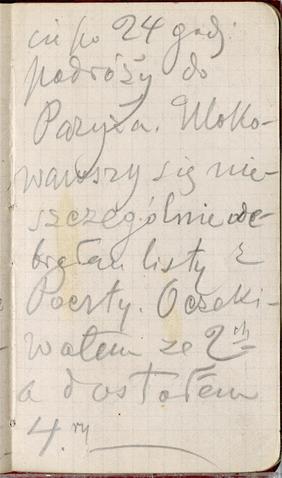 cie po 24 godz.
podróży do
Paryża. Uloko-
wawszy się nie-
szczególnie ode-
brałem listy z
Poczty. Oczeki-
wałem ze 2ch
a dostałem
4.ry